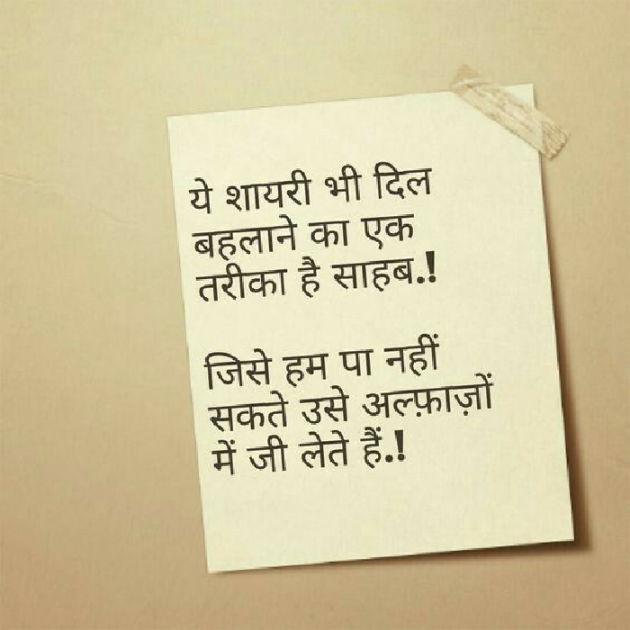 ये शायरी भी दिल
बहलाने का एक
तरीका है साहब.!
जिसे हम पा नहीं
सकते उसे अल्फ़ाज़ों
में जी लेते हैं.!